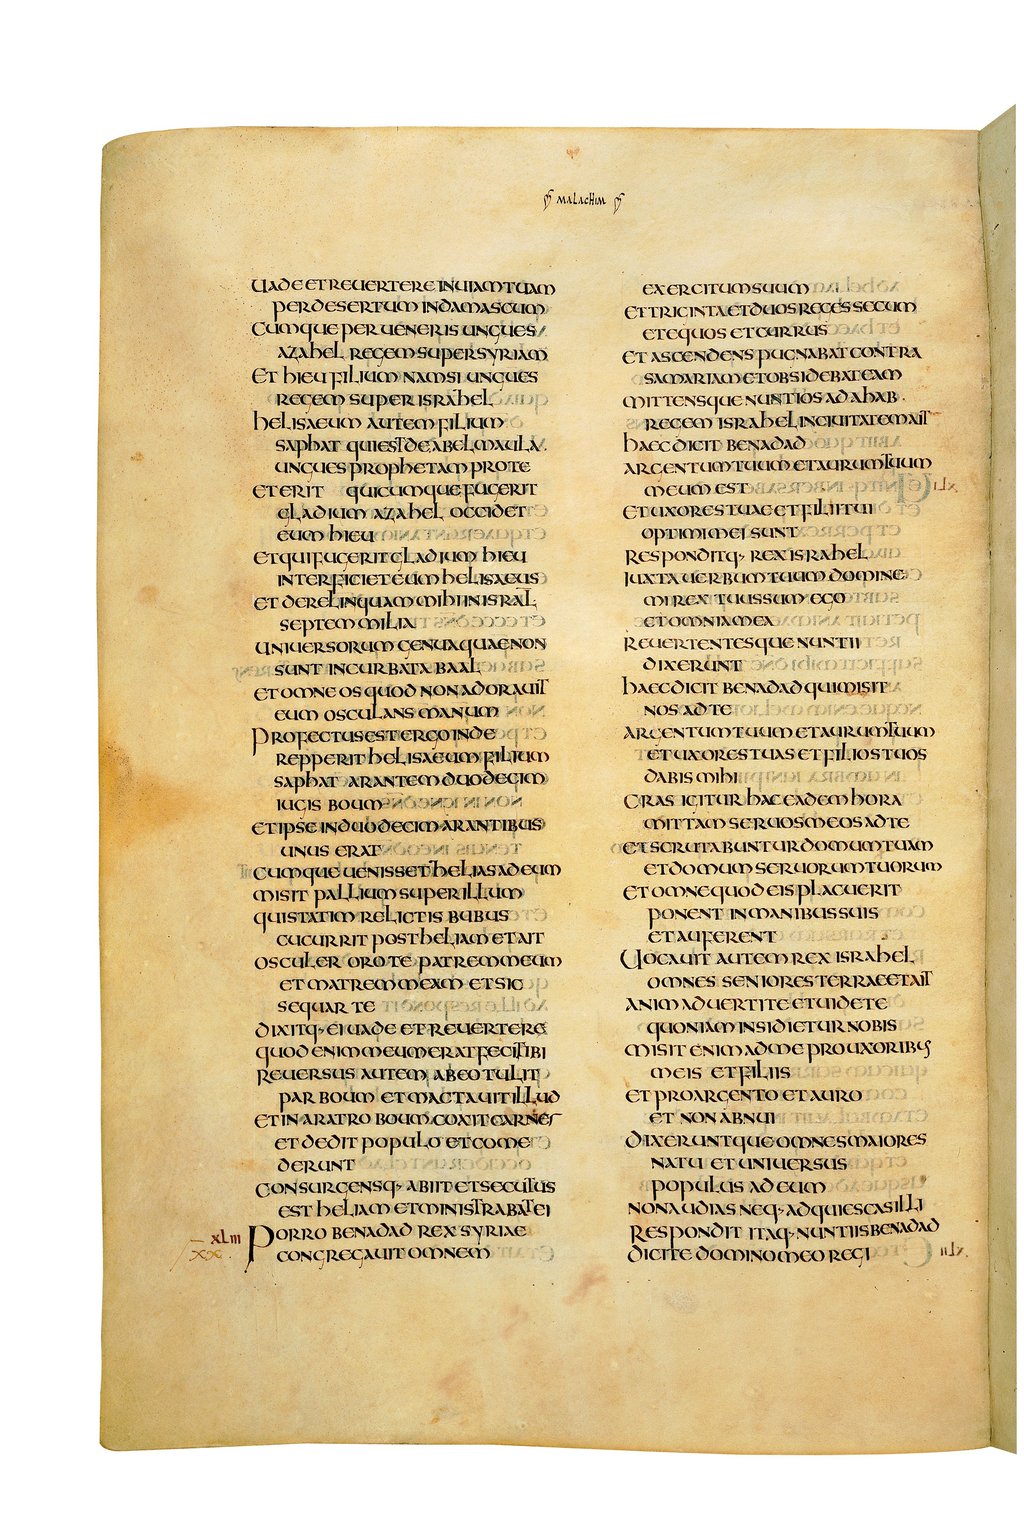 MALACHIM
UADE ET REUERTERE IN UIAM TUAM
PER DESERTUM IN DAMASCUM
CUMQUE PERUENERIS UNGUES
AZAHEL REGEM SUPER SYRIAM
ET HIEU FILIUM NAMSI UNGUES
REGEM SUPER ISRAHEL
HELISAEUM AUTEM FILIUM
SAPHAT QUI EST DE ABELMAULA
UNGUES PROPHETAM PRO TE
ET ERIT QUICUMQUE FUGERIT
GLADIUM AZAHEL OCCIDET
EUM HIEU
ET QUI FUGERIT GLADIUM HIEU
INTERFICIET EUM HELISAEUS
ET DERELINQUAM MIHI IN ISRAL
SEPTEM MILIA
UNIUERSORUM GENUA QUAE NON
SUNT INCURBATA BAAL
ET OMNE OS QUOD NON ADORAUIT
EUM OSCULANS MANUM
PROFECTUS EST ERGO INDE
REPPERIT HELISAEUM FILIUM
SAPHAT ARANTEM DUODECIM
IUGIS BOUM
ET IPSE IN DUODECIM ARANTIBUS
UNUS ERAT
CUMQUE UENISSET HELIAS AD EUM
MISIT PALLIUM SUPER ILLUM
QUI STATIM RELICTIS BUBUS
CUCURRIT POST HELIAM ET AIT
OSCULER ORO TE PATREM MEUM
ET MATREM MEAM ET SIC
SEQUAR TE
DIXITQ· EI UADE ET REUERTERE
QUOD ENIM MEUM ERAT FECI TIBI
REUERSUS AUTEM AB EO TULIT
PAR BOUM ET MACTAUIT ILLUD
ET IN ARATRO BOUM COXIT CARNES
ET DEDIT POPULO ET COME
DERUNT
CONSURGENSQ· ABIIT ET SECUTUS
EST HELIAM ET MINISTRABAT EI
XLIII PORRO BENADAD REX SYRIAE
XX CONGREGAUIT OMNEM
EXERCITUM SUUM
ET TRIGINTA ET DUOS REGES SECUM
ET EQUOS ET CURRUS
ET ASCENDENS PUGNABAT CONTRA
SAMARIAM ET OBSIDEBAT EAM
MITTENSQUE NUNTIOS AD AHAB
REGEM ISRAHEL IN CIUITATEM AIT
HAEC DICIT BENADAD
ARGENTUM TUUM ET AURUM TUUM
MEUM EST
ET UXORES TUAE ET FILII TUI
OPTIMI MEI SUNT
RESPONDITQ· REX ISRAHEL
IUXTA UERBUM TUUM DOMINE
MI REX TUUS SUM EGO
ET OMNIA MEA
REUERTENTESQUE NUNTII
DIXERUNT
HAEC DICIT BENADAD QUI MISIT
NOS AD TE
ARGENTUM TUUM ET AURUM TUUM
ET UXORES TUAS ET FILIOS TUOS
DABIS MIHI
CRAS IGITUR HAC EADEM HORA
MITTAM SERUOS MEOS AD TE
ET SCRUTABUNTUR DOMUM TUAM
ET DOMUM SERUORUM TUORUM
ET OMNE QUOD EIS PLACUERIT
PONENT IN MANIBUS SUIS
ET AUFERENT
UOCAUIT AUTEM REX ISRAHEL
OMNES SENIORES TERRAE ET AIT
ANIMADUERTITE ET UIDETE
QUONIAM INSIDIETUR NOBIS
MISIT ENIM AD ME PRO UXORIBUS
MEIS ET FILIIS
ET PRO ARGENTO ET AURO
ET NON ABNUI
DIXERUNTQUE OMNES MAIORES
NATU ET UNIUERSUS
POPULUS AD EUM
NON AUDIAS NEQ· ADQUIESCAS ILLI
RESPONDIT ITAQ· NUNTIIS BENADAD
DICITE DOMINO MEO REGI